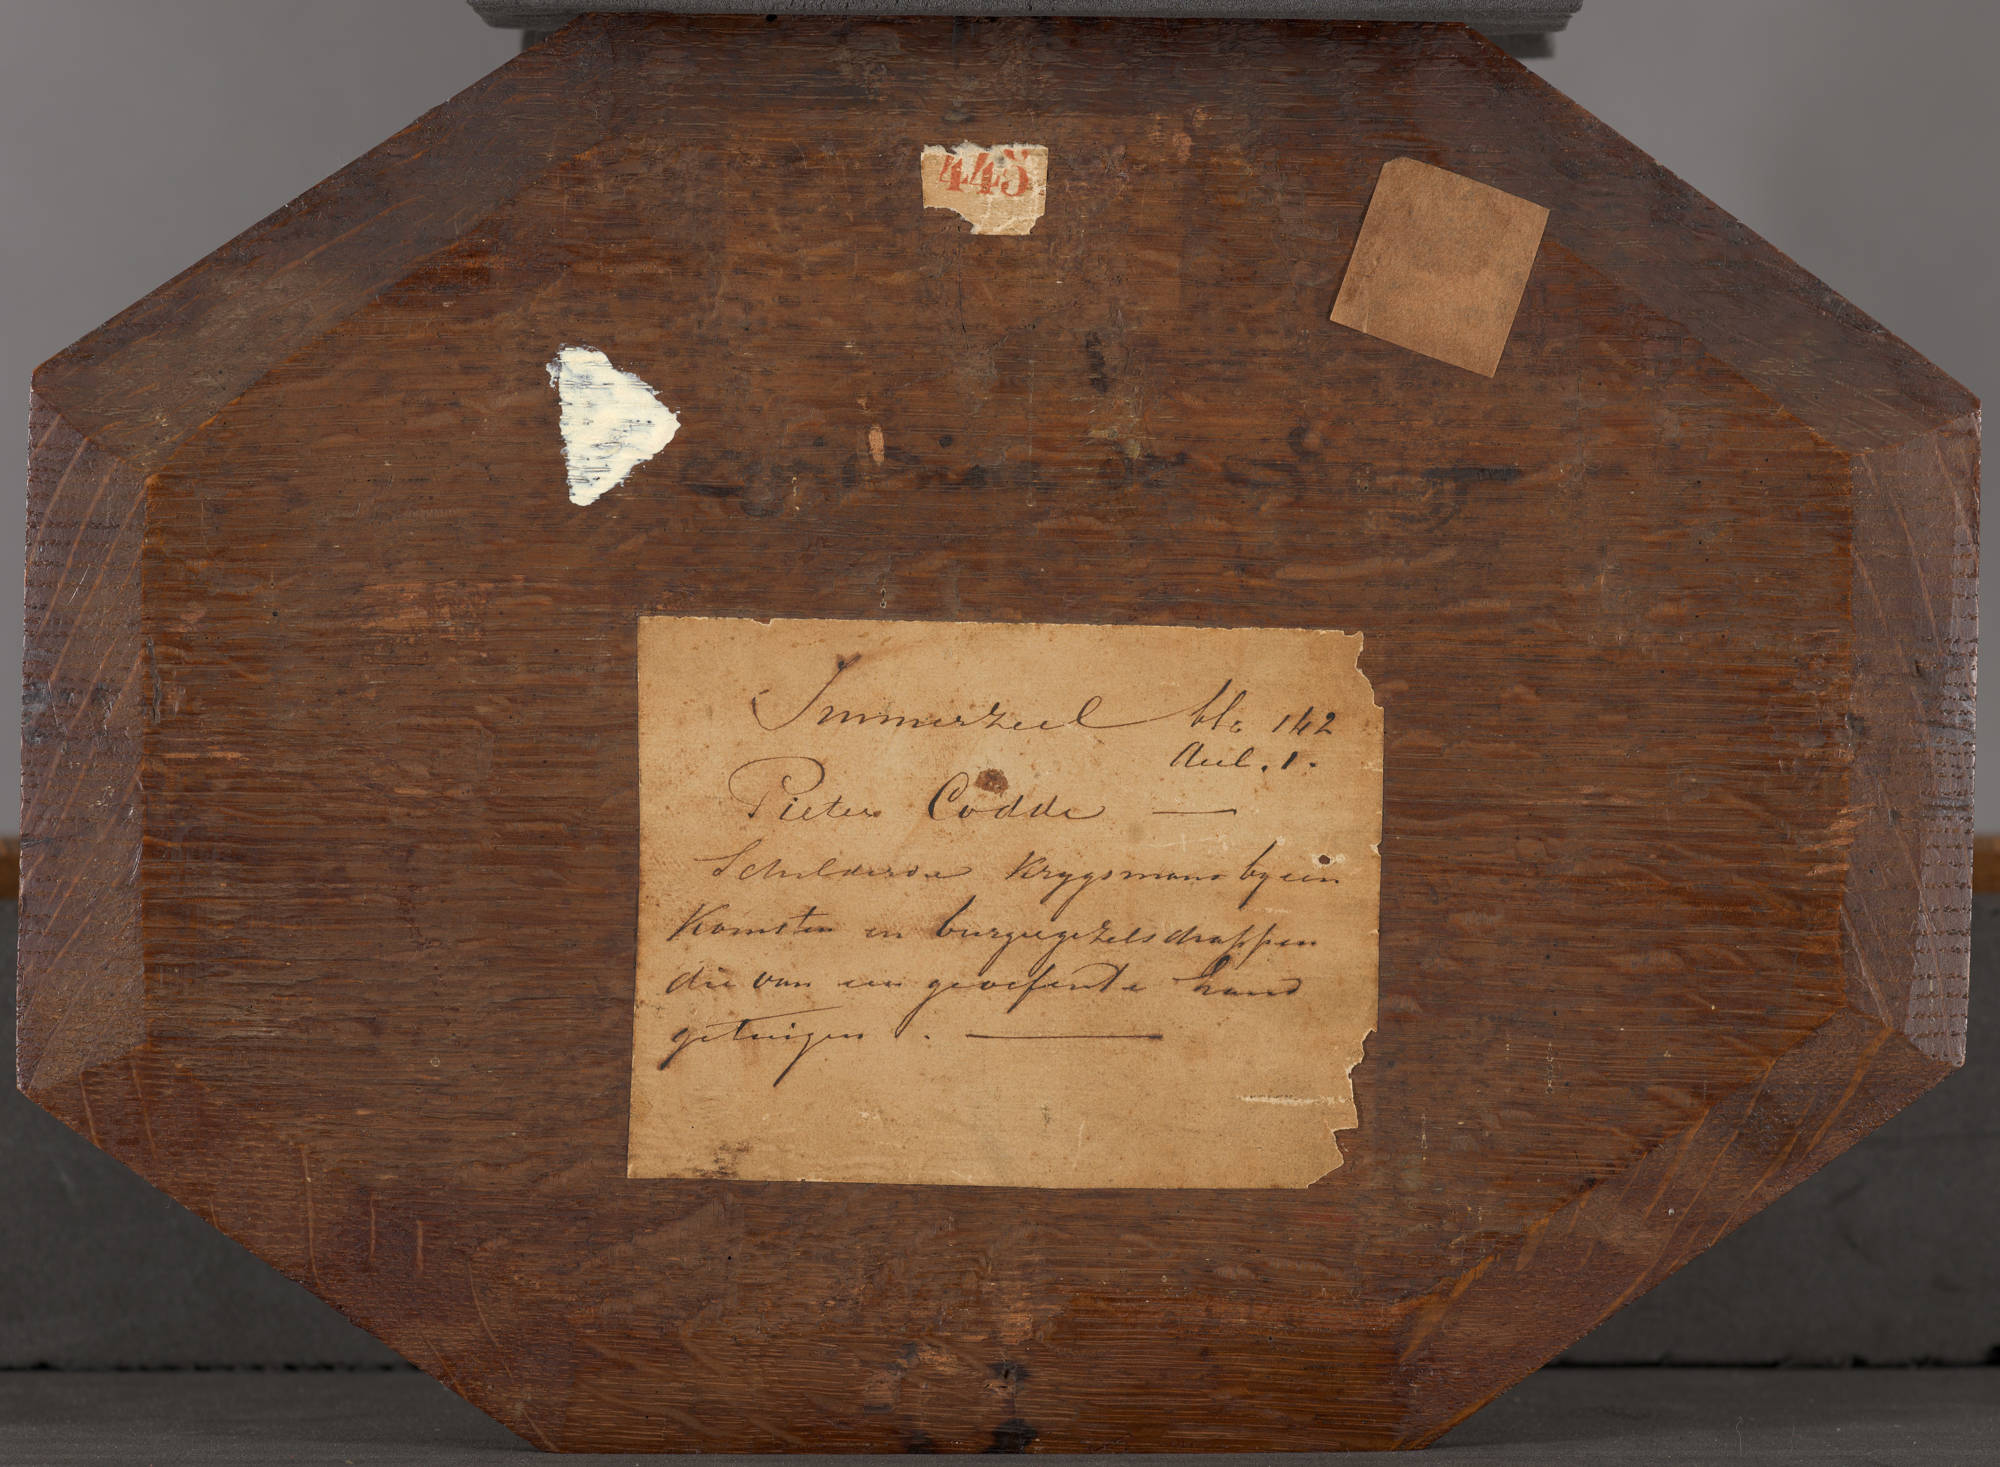 445
Immerzeel blz 142
deel. 1.
Pieter Codde —
Schilderde Krygsmans byeen
Komsten en burgergezelschappen
die van een geoefende hand
getuigen . —